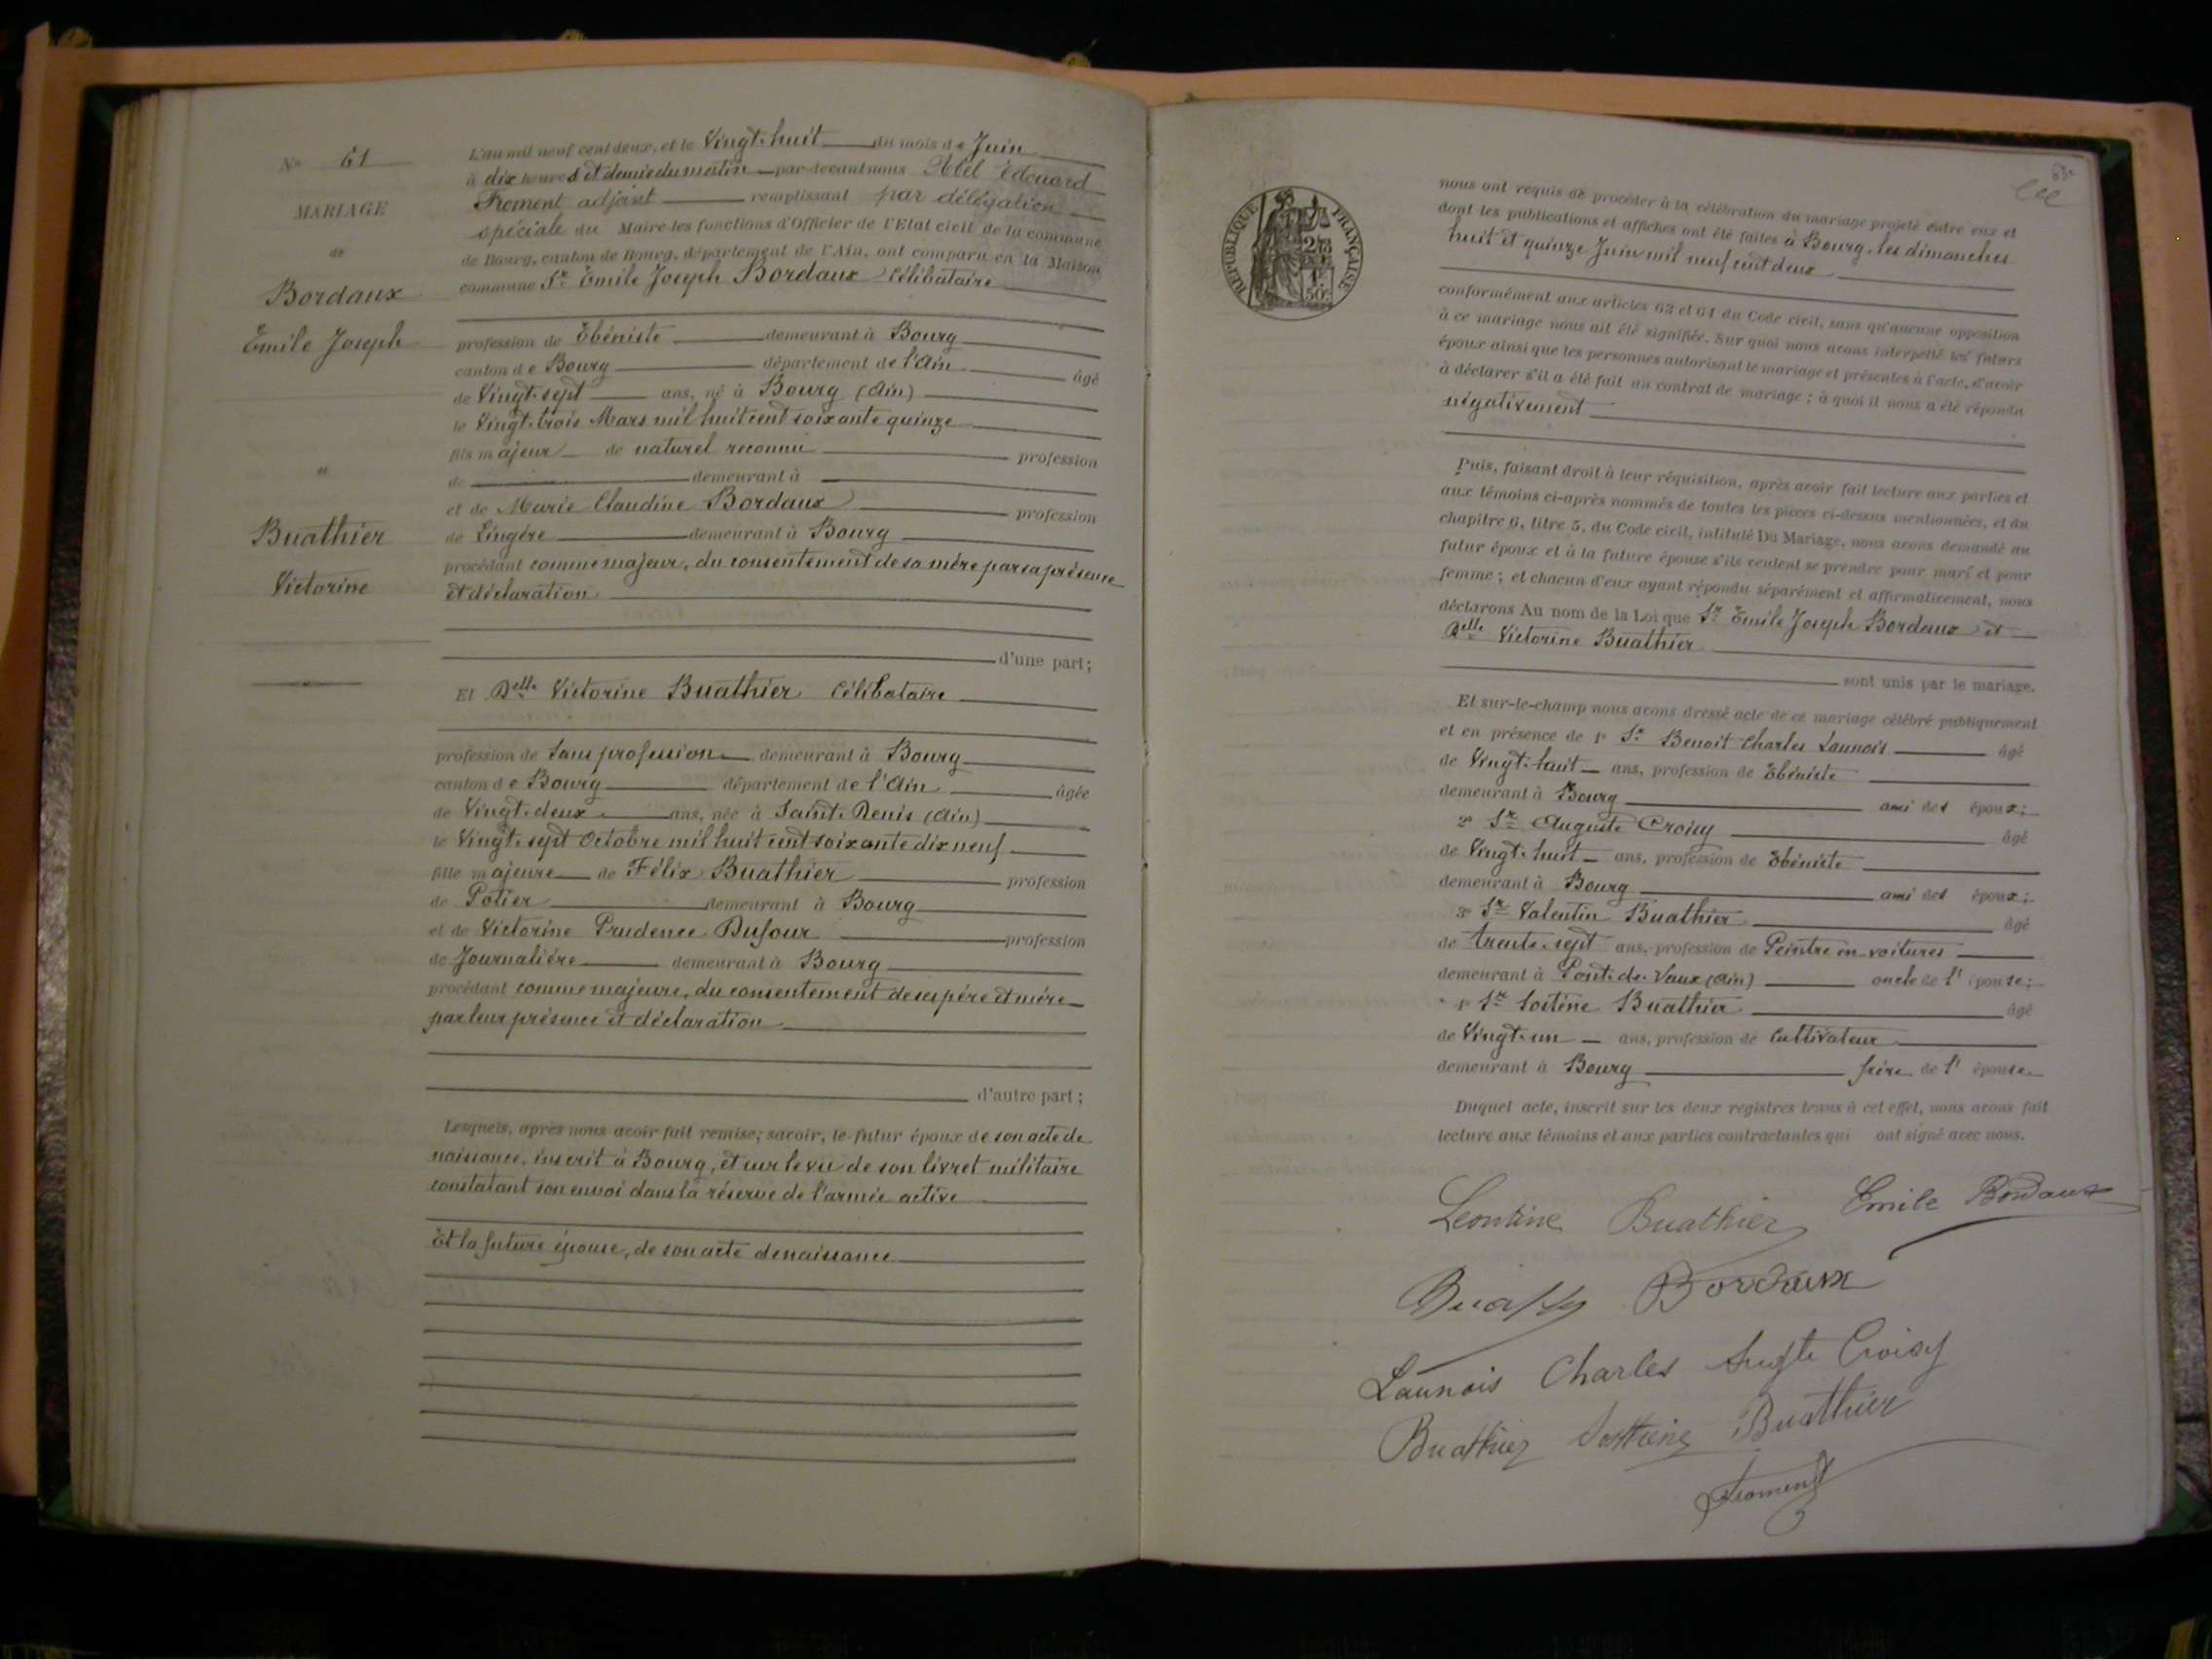 No 61
MARIAGE
de
Bordaux
Emile Joseph
et
Buathier
Victorine
L'an mil neuf cent deux, et le Vingt-huit du mois de Juin
à dix heures et demie du matin par-devant nous Abel Edouard
Froment adjoint remplissant par délégation
spéciale du Maire les fonctions d'Officier de l'Etat civil de la commune
de Bourg, canton de Bourg, département de l'Ain, ont comparu en la Maison
commune Sr Emile Joseph Bordaux Célibataire
profession de Ebéniste demeurant à Bourg
canton de Bourg département de l'Ain âgé
de Vingt-sept ans, né à Bourg (Ain)
le Vingt-trois Mars mil huit cent soixante quinze
fils majeur de naturel reconnu profession
de demeurant à
et de Marie Claudine Bordaux profession
de Lingère demeurant à Bourg
procédant comme majeur, du consentement de sa mère par sa présence
et déclaration
d'une part;
Et Delle Victorine Buathier Célibataire
profession de Sans profession demeurant à Bourg
canton de Bourg département de l'Ain âgée
de Vingt-deux ans, née à Saint-Denis (Ain)
le Vingt-sept Octobre mil huit cent soixante dix neuf
fille majeure de Félix Buathier profession
de Potier demeurant à Bourg
et de Victorine Prudence Dufour profession
de Journalière demeurant à Bourg
procédant comme majeure, du consentement de ses père et mère
par leur présence et déclaration
d'autre part;
Lesquels, après nous avoir fait remise; savoir, le futur époux de son acte de
naissance, inscrit à Bourg, et sur le vu de son livret militaire
constatant son envoi dans la réserve de l'armée active
Et la future épouse, de son acte de naissance
63e
REPUBLIQUE FRANÇAISE
nous ont requis de procéder à la célébration du mariage projeté entre eux et
dont les publications et affiches ont été faites à Bourg les dimanches
huit et quinze Juin mil neuf cent deux
conformément aux articles 63 et 64 du Code civil, sans qu'aucune opposition
à ce mariage nous ait été signifiée. Sur quoi nous avons interpellé les futurs
époux ainsi que les personnes autorisant le mariage et présentes à l'acte, d'avoir
à déclarer s'il a été fait un contrat de mariage; à quoi il nous a été répondu
négativement
Puis, faisant droit à leur réquisition, après avoir fait lecture aux parties et
aux témoins ci-après nommés de toutes les pièces ci-dessus mentionnées, et du
chapitre 6, titre 5, du Code civil, intitulé Du Mariage, nous avons demandé au
futur époux et à la future épouse s'ils veulent se prendre pour mari et pour
femme; et chacun d'eux ayant répondu séparément et affirmativement, nous
déclarons Au nom de la Loi que Sr Emile Joseph Bordaux et
Delle Victorine Buathier
sont unis par le mariage.
Et sur-le-champ nous avons dressé acte de ce mariage célébré publiquement
et en présence de 1o Sr Benoit Charles Launois âgé
de Vingt-huit ans, profession de Ebéniste
demeurant à Bourg ami des époux;
2o Sr Auguste Croisy âgé
de Vingt-huit ans, profession de Ebéniste
demeurant à Bourg ami des époux;
3o Sr Valentin Buathier âgé
de trente-sept ans, profession de Peintre en voitures
demeurant à Pont-de-Vaux (Ain) oncle de l'épouse;
4o Sr Sostène Buathier âgé
de Vingt-un ans, profession de Cultivateur
demeurant à Bourg frère de l'épouse
Duquel acte, inscrit sur les deux registres tenus à cet effet, nous avons fait
lecture aux témoins et aux parties contractantes qui ont signé avec nous.
Leontine Buathier Emile Bordaux
Bordaux
Launois Charles Auguste Croisy
Buathier Sosthène Buathier
Froment